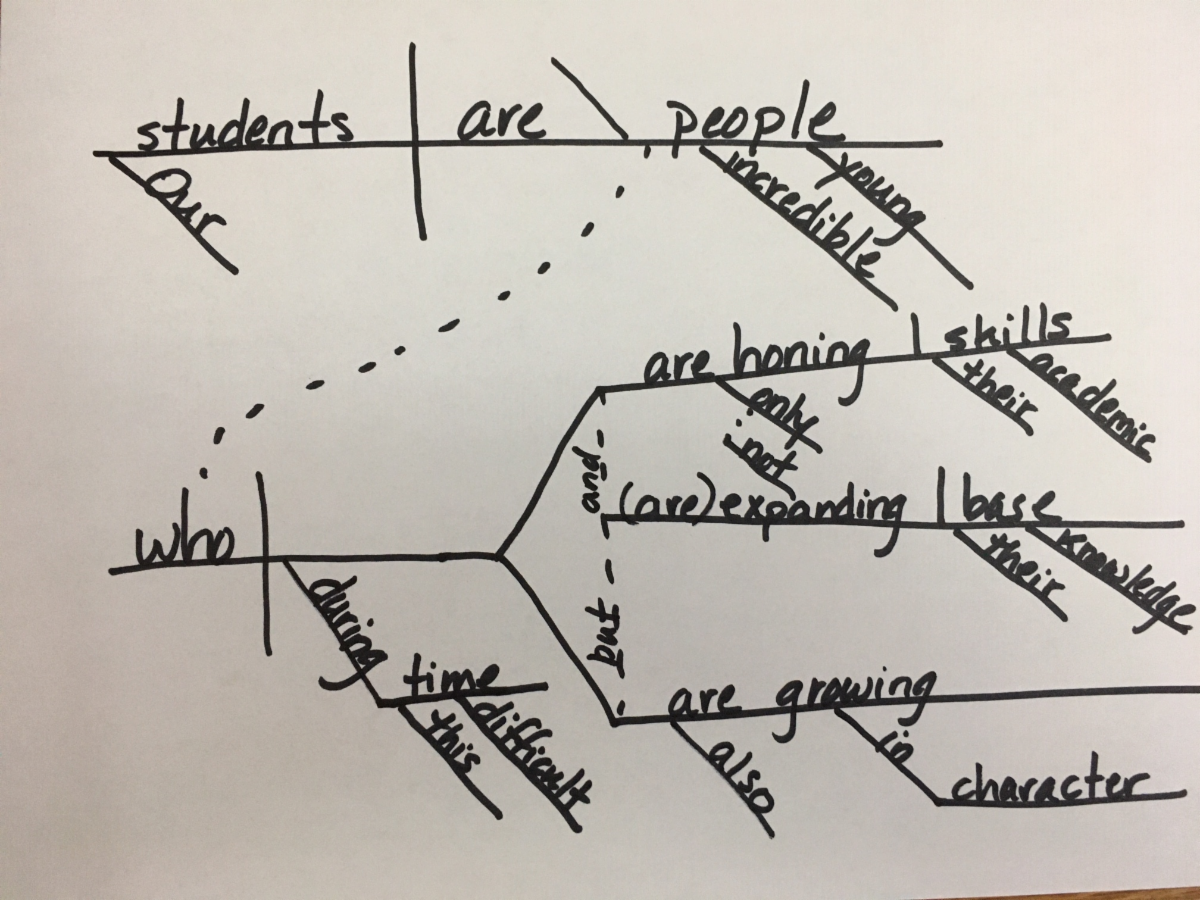 students are people
Our
incredible
young
are honing skills
only
not
their
academic
and
(are) expanding base
their
knowledge
who
during
time
this
difficult
but
are growing
also
in
character